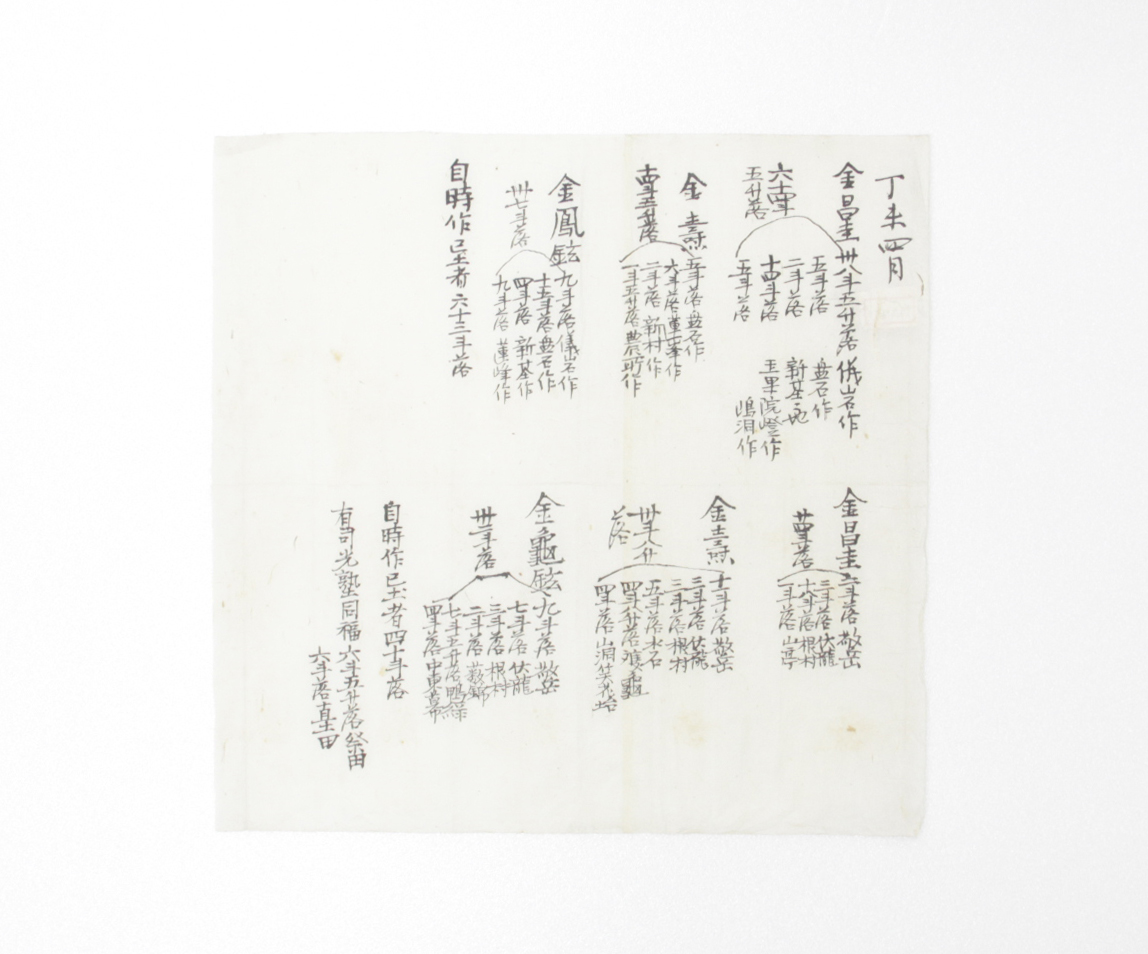 丁未四月
金昌圭 卅八斗五升落 儀岩作
五斗落 盤石作
六十四斗 二斗落 新基地
五升落 十四斗落 玉果院燈作
五斗落 鳴洞作
金 五斗落 盤石作
六斗落 作
十四斗五升落 二斗落 新村作
一斗五升落 農所作
金鳳鉉 九斗落 儀岩作
十五斗落 盤石作
卅七斗落 四斗落 新基作
九斗落 作
自時作已土者六十三斗落
金昌圭 六斗落 敬岳
三斗落 伏龍
廿四斗落 十斗落 根村
一斗落 山亭
金 十一斗落 敬岳
三斗落 伏龍
三斗落 根村
卅一斗八升 五斗落 水石
落 四斗八升落
四斗落 山洞
金龜鉉 九斗落 敬岳
七斗落 伏龍
三斗落 根村
卅三斗落 二斗落 錦
七斗五升落 鴨綠
四斗落 中東幕
自時作已土者四十斗落
有司光塾同福 六斗五升落祭田
六斗落直土田